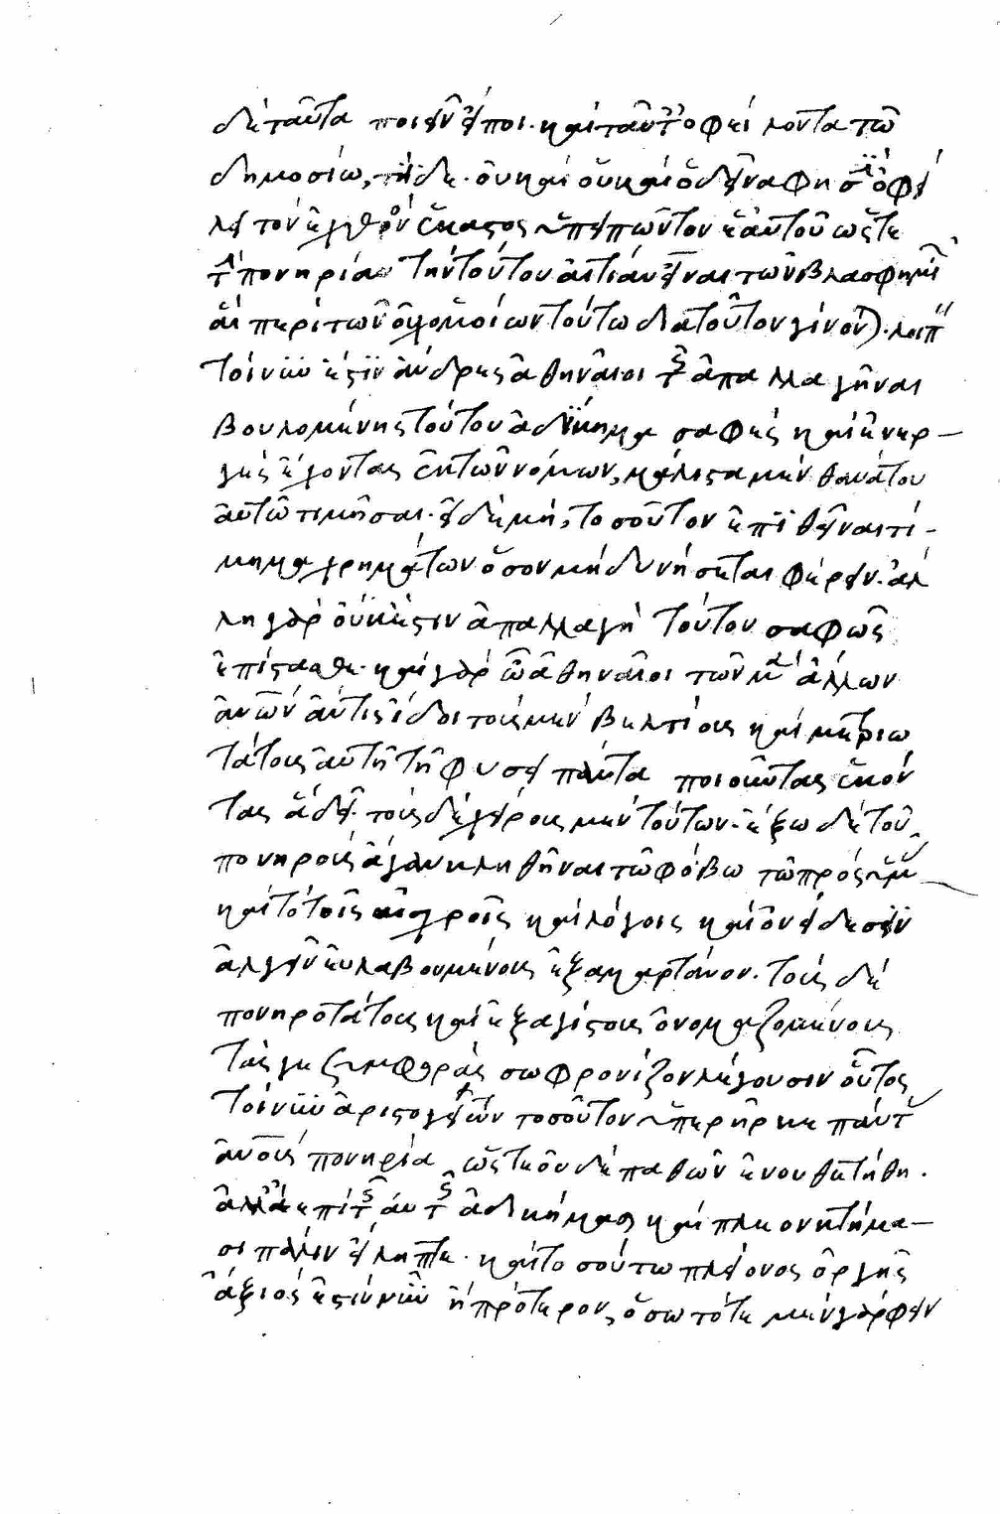 δὲ ταῦτα ποιεῖν εἴποι. καὶ ταῦτ' ὀφείλοντα τῶ
δημοσίω, τίς δὲ. οὐ καὶ οὐκ
τὸν ἐλθόν ἕκαστος ὑπειπὼν τὸν ἑαυτοῦ ὥστε
τ πονηρίαν τὴν τούτου αἰτίαν εἶναι τῶν βλασφημι
αἳ περὶ τῶν ὁμοίων τούτω διὰ τοῦτον γίνον). λοιπ
τοίνυν ἐστὶν ἄνδρες ἀθηναῖοι τ ἀπαλλαγῆναι
βουλομένης τούτου ἀδίκημα σαφὲς καὶ ἐναρ-
γὲς ἔχοντας ἐκ τῶν νόμων, μάλιστα μὲν θανάτου
αὐτῶ τιμῆσαι. εἰ δὲ μὴ, τοσοῦτον ἐπιθεῖναι τί-
μημα χρημάτων ὅσον μὴ δυνήσεται φέρειν. ἀλ
λη γὰρ οὐκ ἔστιν ἀπαλλαγὴ τούτου σαφῶς
ἐπίστασθε. καὶ γὰρ ὦ ἀθηναῖοι τῶν μ ἄλλων
ἀνων ἄν τις ἴδοι τοὺς μὲν βελτίους καὶ μετριω
τάτους αὐτῆ τῆ φύσει πάντα ποιοῦντας ἑκόν
τας ἃ δεῖ. τοὺς δὲ χείρους μὲν τούτων. ἔξω δὲ τοῦ
πονηροὺς ἄγαν κληθῆναι τῶ φόβω τῶ πρὸς ὑμ
καὶ τὸ τοῖς αἰσχροῖς καὶ λόγοις καὶ ὀνείδεσιν
ἀλγεῖν εὐλαβουμένους ἐξαμαρτάνον. τοὺς δὲ
πονηροτάτους καὶ ἐξαγίστους ὀνομαζομένους
τάς γε ξυμφορὰς σωφρονίζον λέγουσιν οὗτος
τοίνυν ἀριστογείτων τοσοῦτον ὑπερῆρκε πάντ
ἀνους πονηρία ὥστε οὐδὲ παθῶν ἐνουθετήθη.
ἀλλὰ ἐπὶ τ αὐτ ἀδικήμασι καὶ πλεονεκτήμα-
σι πάλιν εἴληπται. καὶ τοσούτω πλείονος ὀργῆς
ἄξιός ἐστι νῦν ἢ πρότερον, ὅσω τότε μὲν γράφειν